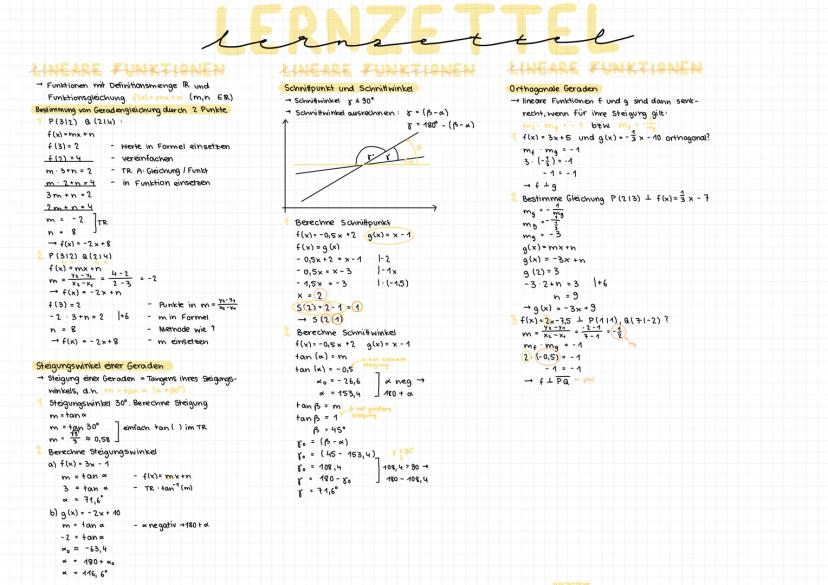 LERNZETTEL
lernzettel
LINEARE FUNKTIONEN
→ Funktionen mit Definitionsmenge ℝ und
Funktionsgleichung f(x)=mx+n (m,n ∈ℝ)
Bestimmung von Geradengleichung durch 2 Punkte
1 P(3|2) Q(2|4):
f(x)=mx+n
f(3)=2 - Werte in Formel einsetzen
f(2)=4 - vereinfachen
m·3+n=2 - TR A: Gleichung / Funkt
m·2+n=4 - in Funktion einsetzen
3m+n=2
2m+n=4
m = -2 ] TR
n = 8
→ f(x)=-2x+8
2 P(3|2) Q(2|4)
f(x)=mx+n
m = y₂-y₁/x₂-x₁ = 4-2/2-3 = -2
→ f(x)=-2x+n
f(3)=2 - Punkte in m = y₂-y₁/x₂-x₁
-2·3+n=2 |+6 - m in Formel
n = 8 - Methode wie 1
→ f(x)=-2x+8 - m einsetzen
Steigungswinkel einer Geraden
→ Steigung einer Geraden = Tangens ihres Seigungs-
winkels, d.h. m=tan α (α≠90°)
1 Steigungswinkel 30°. Berechne Steigung
m=tan α
m=tan 30° ] einfach tan( ) im TR
m = √3/3 ≈ 0,58
2 Berechne Steigungswinkel
a) f(x)=3x-1
m = tan α - f(x)=mx+n
3 = tan α - TR: tan⁻¹(m)
α = 71,6°
b) g(x)=-2x+10
m = tan α - α negativ →180+α
-2 = tan α
α₀ ≈ -63,4
α = 180+α₀
α = 116,6°
LINEARE FUNKTIONEN
Schnittpunkt und Schnittwinkel
→ Schnittwinkel γ ≤ 90°
→ Schnittwinkel ausrechnen: γ = (β-α)
γ = 180°-(β-α)
γ' γ β α
1 Berechne Schnittpunkt
f(x)=-0,5x+2 g(x)=x-1
f(x)=g(x)
-0,5x+2 = x-1 |-2
-0,5x = x-3 |-1x
-1,5x = -3 |:(-1,5)
x = 2
S(2)=2-1=1
→ S(2|1)
2 Berechne Schnittwinkel
f(x)=-0,5x+2 g(x)=x-1
tan(α)=m
α hat kleinere Steigung
tan(α)=-0,5
α₀ = -26,6 ] α neg →
α = 153,4 180+α
tan β = m
β hat größere Steigung
tan β = 1
β = 45°
γ₀ = (β-α)
γ₀ = (45-153,4) γ ≤ 90°
γ₀ = 108,4 ] 108,4 > 90 →
γ = 180-γ₀ 180-108,4
γ = 71,6°
LINEARE FUNKTIONEN
Orthogonale Geraden
→ lineare Funktionen f und g sind dann senk-
recht, wenn für ihre Steigung gilt:
mf·mg=-1 bzw. mf=-1/mg
1 f(x)=3x+5 und g(x)=-1/3x-10 orthogonal?
mf·mg=-1
3·(-1/3)=-1
-1=-1
→ f⊥g
2 Bestimme Gleichung P(2|3) ⊥ f(x)=1/3x-7
mg=-1/mf
mg=-1/1/3
mg=-3
g(x)=mx+n
g(x)=-3x+n
g(2)=3
-3·2+n=3 |+6
n=9
→ g(x)=-3x+9
3 f(x)=2x-7,5 ⊥ P(1|1), Q(7|-2)?
m = y₂-y₁/x₂-x₁ = -2-1/7-1 = -1/2
mf·mg=-1
2·(-0,5)=-1
-1=-1
→ f⊥PQ ← g(x)